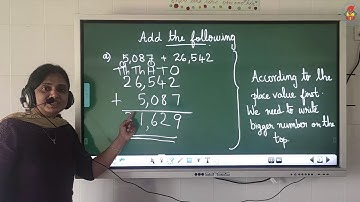 Add the following
a) 5,087 + 26,542
TTh Th H T O
26,542
+ 5,087
1,629
According to the
place value first.
We need to write
bigger number on the
top.